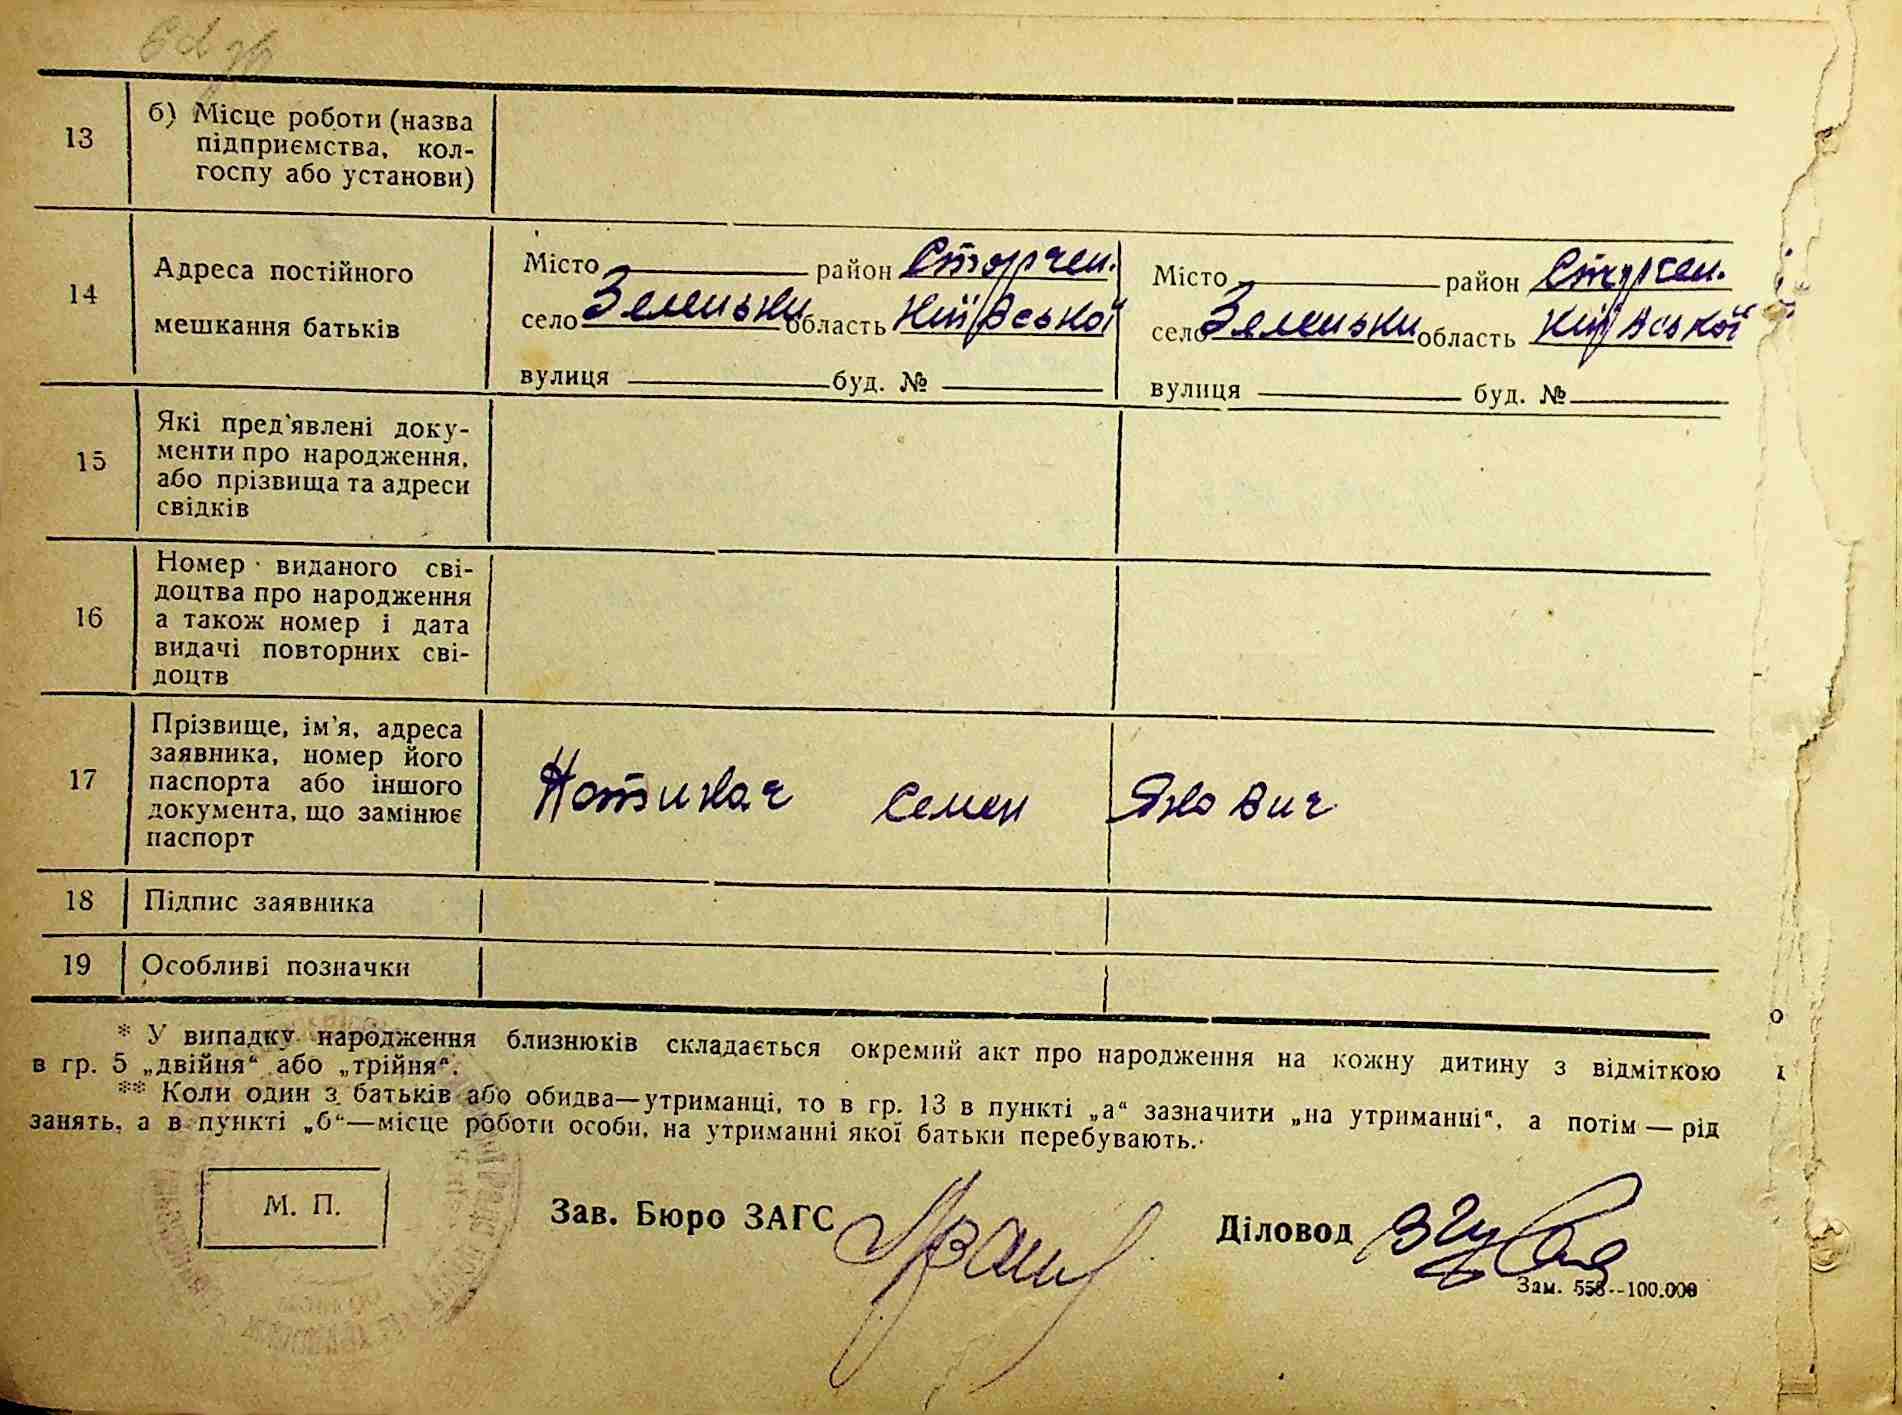 13
б) Місце роботи (назва
підприємства, кол-
госпу або установи)
14
Адреса постійного
мешкання батьків
Місто район Сторчен.
село Зеленьки область Київської
вулиця буд. №
Місто район Сторчен.
село Зеленьки область Київської
вулиця буд. №
15
Які пред'явлені доку-
менти про народження,
або прізвища та адреси
свідків
16
Номер виданого сві-
доцтва про народження
а також номер і дата
видачі повторних сві-
доцтв
17
Прізвище, ім'я, адреса
заявника, номер його
паспорта або іншого
документа, що замінює
паспорт
Семен Янович
18
Підпис заявника
19
Особливі позначки
* У випадку народження близнюків складається окремий акт про народження на кожну дитину з відміткою
в гр. 5 „двійня“ або „трійня“.
** Коли один з батьків або обидва—утриманці, то в гр. 13 в пункті „а“ зазначити „на утриманні“, а потім — рід
занять, а в пункті „б“—місце роботи особи, на утриманні якої батьки перебувають.
М. П.
Зав. Бюро ЗАГС
Діловод
Зам. 558--100.000